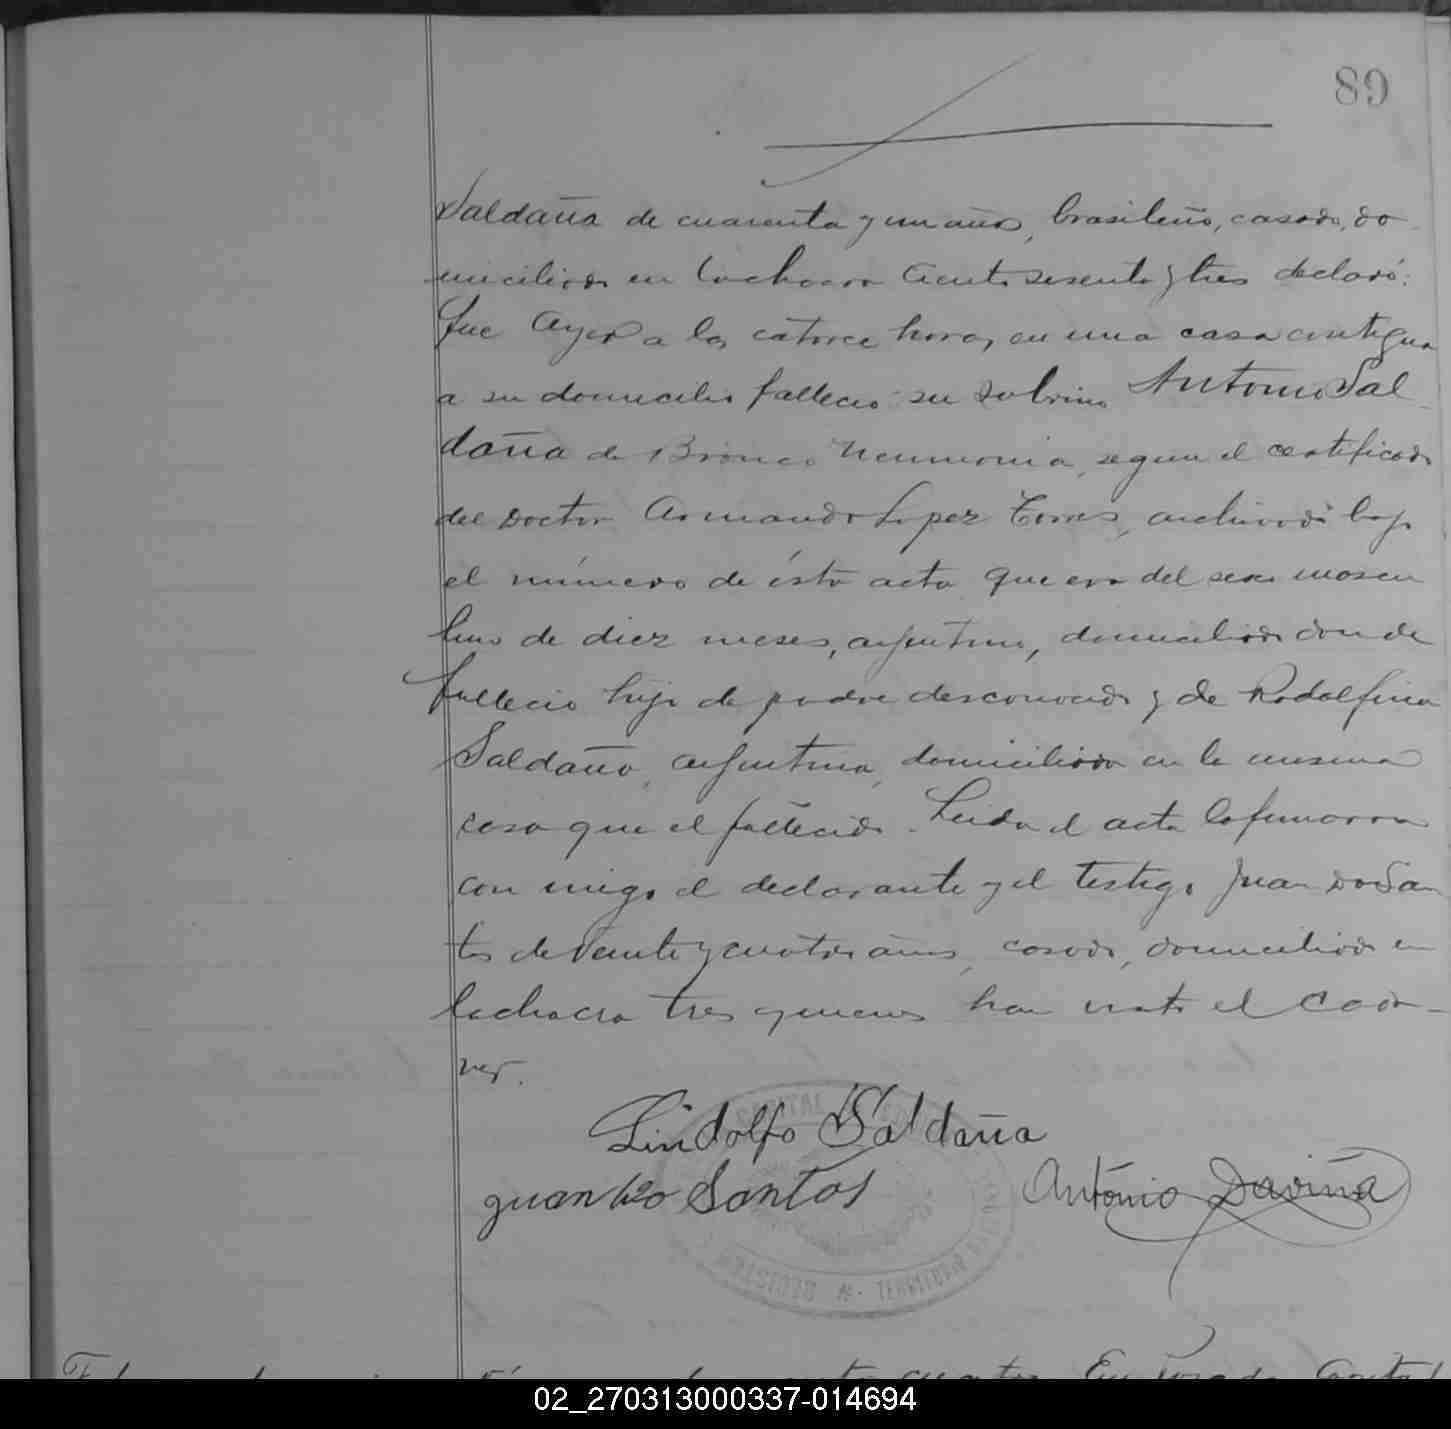 89
Saldaña de cuarenta y un años, brasileño, casado, do
miciliado en la chacra ciento sesenta y tres declaró:
Que ayer a las catorce horas, en una casa contigua
a su domicilio falleció su sobrino Antonio Sal
daña de Bronco Neumonia, segun el certificado
del Doctor Armando Lopez Torres, archivado bajo
el número de ésta acta que era del sexo mascu
lino de diez meses, argentino, domiciliado donde
falleció hijo de padre desconocido y de Rodolfina
Saldaña, argentina, domiciliada en la misma
casa que el fallecido. Leida el acta la firmaron
con migo el declarante y el testigo Juan do San
tos de veinte y cuatro años, casado, domiciliado en
la chacra tres quienes han visto el cada-
ver.
Lindolfo Saldaña
Juan do Santos Antonio Daviña
CAPITAL
REGISTRO TERRITORIO
02_270313000337-014694